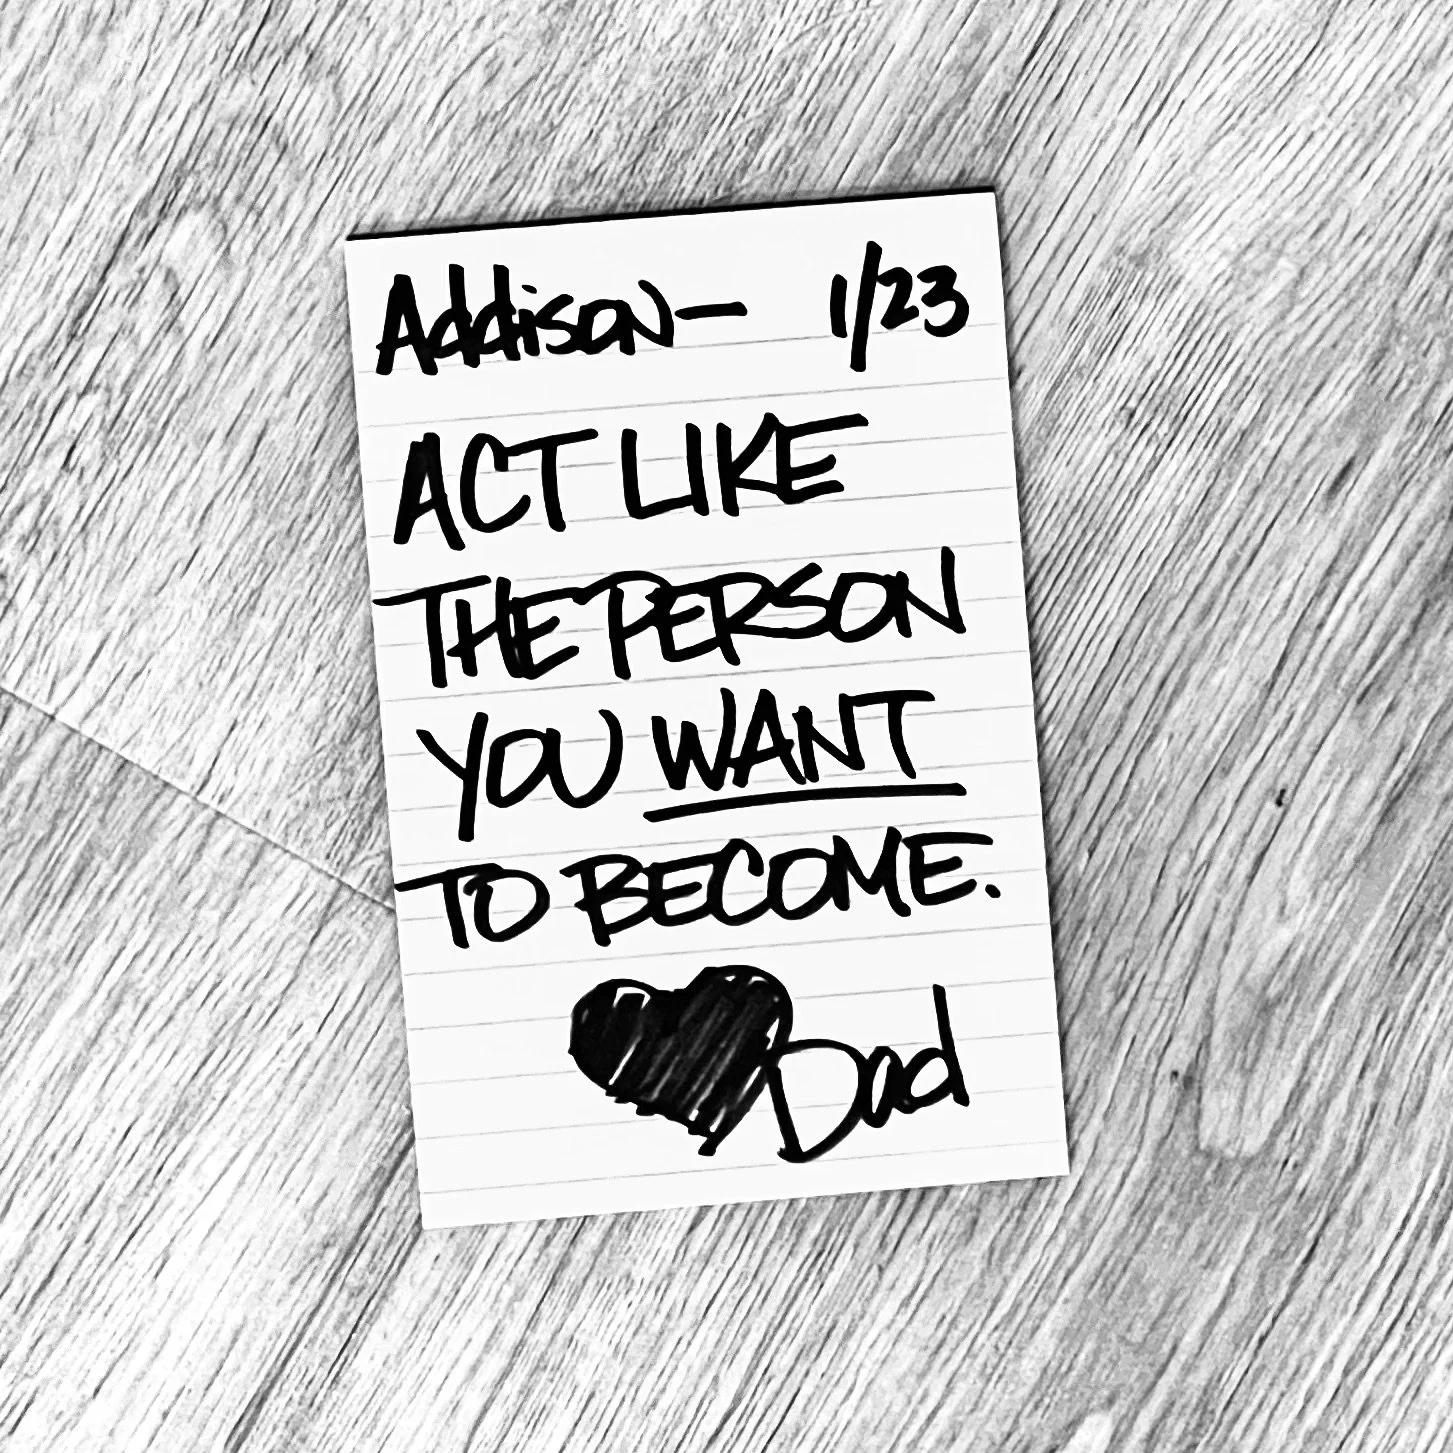 Addison— 1/23
ACT LIKE
THE PERSON
YOU WANT
TO BECOME.
Dad